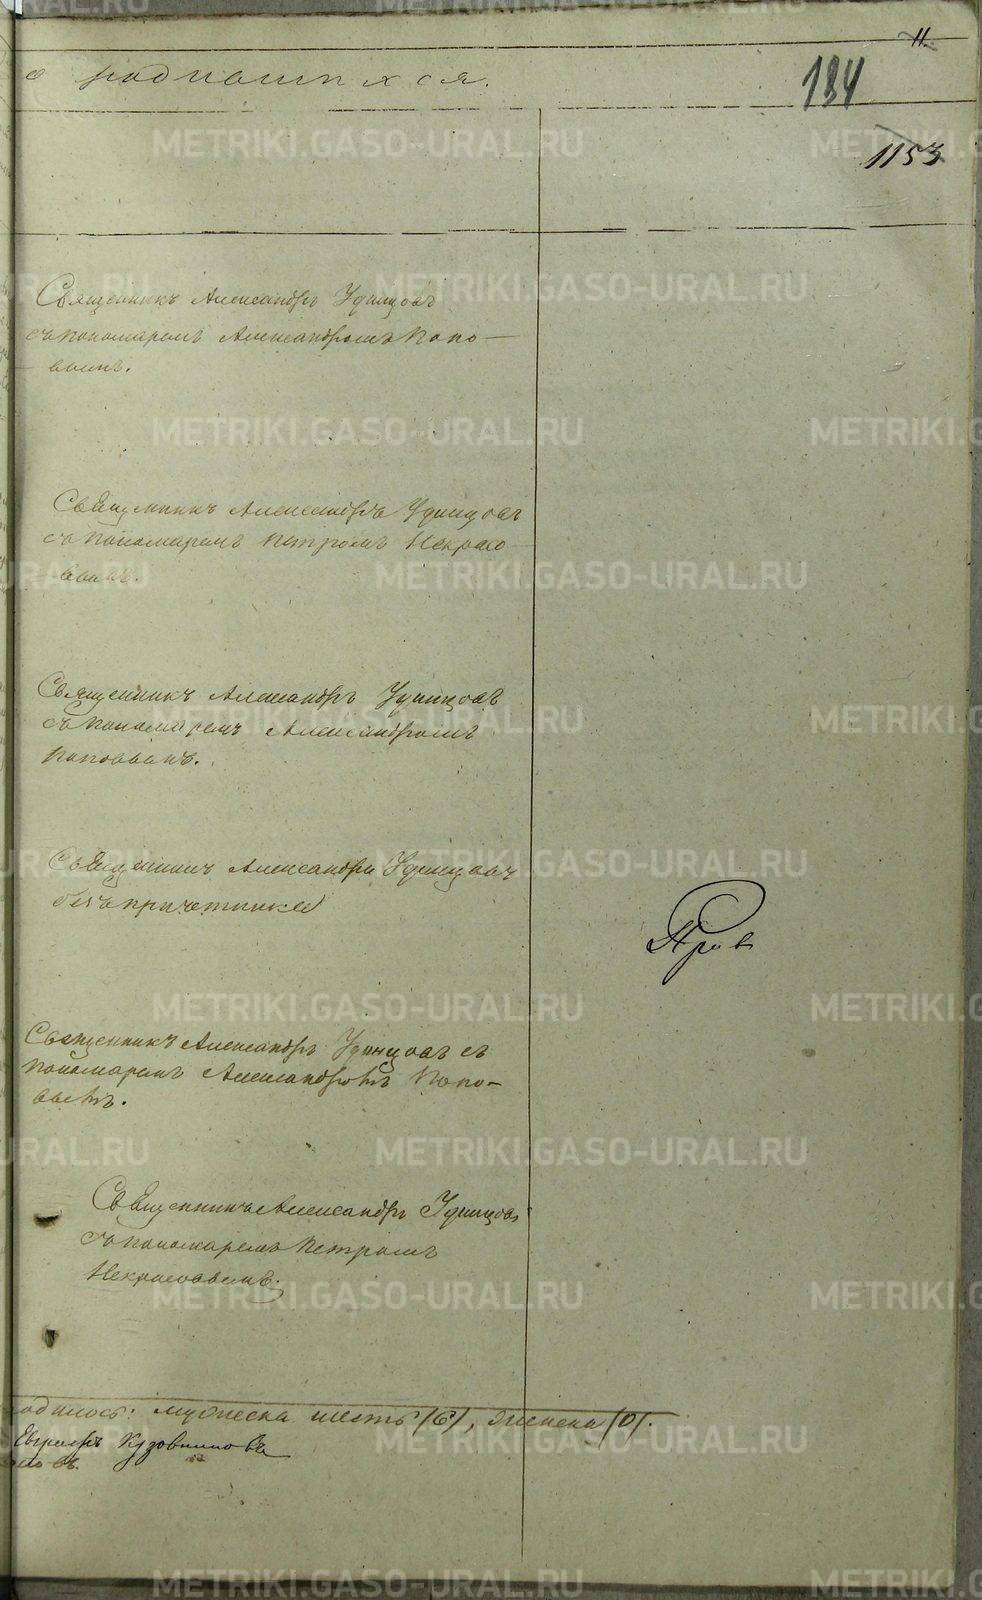 11.
о родившихся.
184
1153
Священникъ Александръ Удинцовъ
съ пономаремъ Александромъ Попо-
вымъ.
Священникъ Александръ Удинцовъ
съ пономаремъ Петромъ Некрасо-
вымъ.
Священникъ Александръ Удинцовъ
съ пономаремъ Александромъ
Поповымъ.
Священникъ Александръ Удинцовъ
безъ причетника
Пров
Священникъ Александръ Удинцовъ съ
пономаремъ Александромъ Попо-
вымъ.
Священникъ Александръ Удинцовъ
съ пономаремъ Петромъ
Некрасовымъ.
одилось: мужеска шесть /6/, женска /0/.
Евграфъ Кузовниковъ
METRIKI.GASO-URAL.RU